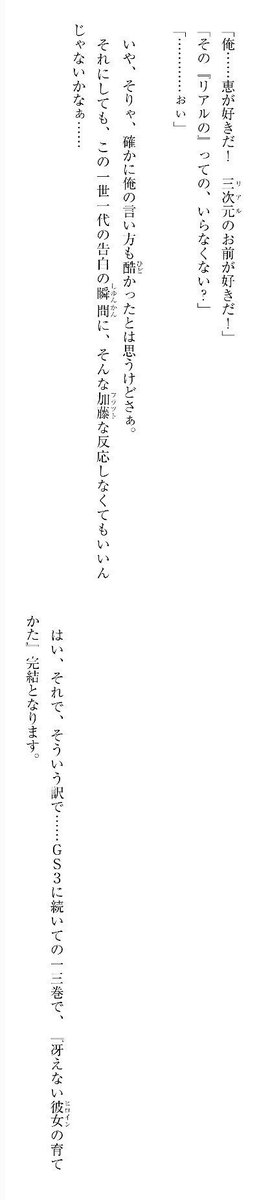 「俺……恵が好きだ！　三次元のお前が好きだ！」
「その『リアルの』っての、いらなくない？」
「…………おい」
いや、そりゃ、確かに俺の言い方も酷かったとは思うけどさぁ。
それにしても、この一世一代の告白の瞬間に、そんな加藤な反応しなくてもいいん
じゃないかなぁ……
はい、それで、そういう訳で……ＧＳ３に続いての一三巻で、『冴えない彼女の育て
かた』完結となります。